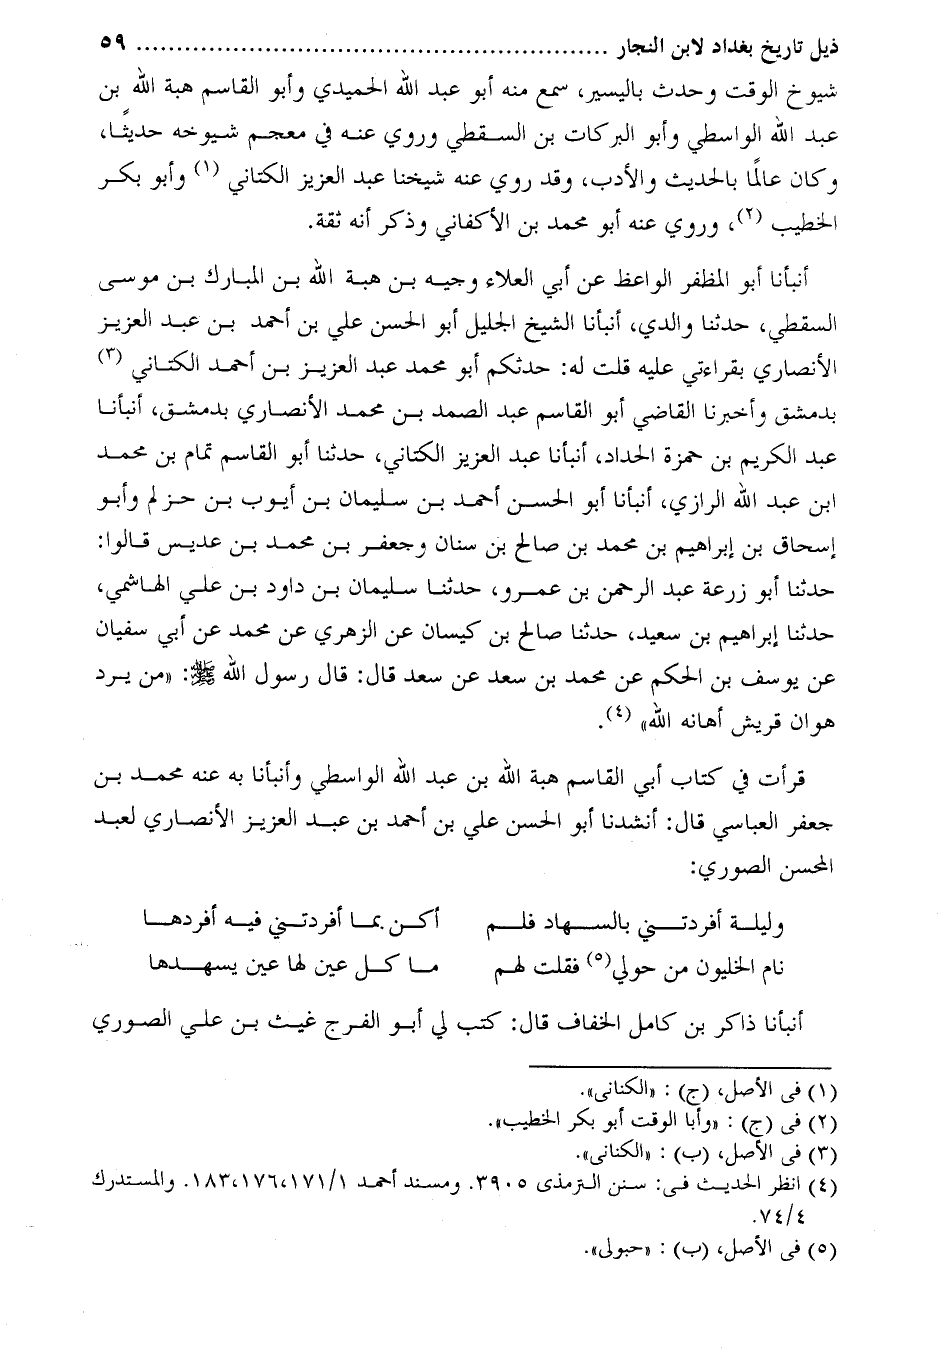 ذيل تاريخ بغداد لابن النجار ........................................................ ٥٩
شيوخ الوقت وحدث باليسير، سمع منه أبو عبد الله الحميدي وأبو القاسم هبة الله بن
عبد الله الواسطي وأبو البركات بن السقطي وروي عنه في معجم شيوخه حديثًا،
وكان عالمًا بالحديث والأدب، وقد روي عنه شيخنا عبد العزيز الكتاني (١) وأبو بكر
الخطيب (٢)، وروي عنه أبو محمد بن الأكفاني وذكر أنه ثقة.
أنبأنا أبو المظفر الواعظ عن أبي العلاء وجيه بن هبة الله بن المبارك بن موسى
السقطي، حدثنا والدي، أنبأنا الشيخ الجليل أبو الحسن علي بن أحمد بن عبد العزيز
الأنصاري بقراءتي عليه قلت له: حدثكم أبو محمد عبد العزيز بن أحمد الكتاني (٣)
بدمشق وأخبرنا القاضي أبو القاسم عبد الصمد بن محمد الأنصاري بدمشق، أنبأنا
عبد الكريم بن حمزة الحداد، أنبأنا عبد العزيز الكتاني، حدثنا أبو القاسم تمام بن محمد
ابن عبد الله الرازي، أنبأنا أبو الحسن أحمد بن سليمان بن أيوب بن حزلم وأبو
إسحاق بن إبراهيم بن محمد بن صالح بن سنان وجعفر بن محمد بن عديس قالوا:
حدثنا أبو زرعة عبد الرحمن بن عمرو، حدثنا سليمان بن داود بن علي الهاشمي،
حدثنا إبراهيم بن سعيد، حدثنا صالح بن كيسان عن الزهري عن محمد عن أبي سفيان
عن يوسف بن الحكم عن محمد بن سعد عن سعد قال: قال رسول الله ﷺ: «من يرد
هوان قريش أهانه الله» (٤).
قرأت في كتاب أبي القاسم هبة الله بن عبد الله الواسطي وأنبأنا به عنه محمد بن
جعفر العباسي قال: أنشدنا أبو الحسن علي بن أحمد بن عبد العزيز الأنصاري لعبد
المحسن الصوري:
وليلة أفردتني بالسهاد فلم أكن بما أفردتني فيه أفردها
نام الخليون من حولي(٥) فقلت لهم ما كل عين لها عين يسهدها
أنبأنا ذاكر بن كامل الخفاف قال: كتب لي أبو الفرج غيث بن علي الصوري
(١) فى الأصل، (ج) : «الكنانى».
(٢) فى (ج) : «وأبا الوقت أبو بكر الخطيب».
(٣) فى الأصل، (ب) : «الكنانى».
(٤) انظر الحديث فى: سنن الترمذى ٣٩٠٥. ومسند أحمد ١٧١/١، ١٧٦، ١٨٣. والمستدرك
٧٤/٤.
(٥) فى الأصل، (ب) : «حبولى».